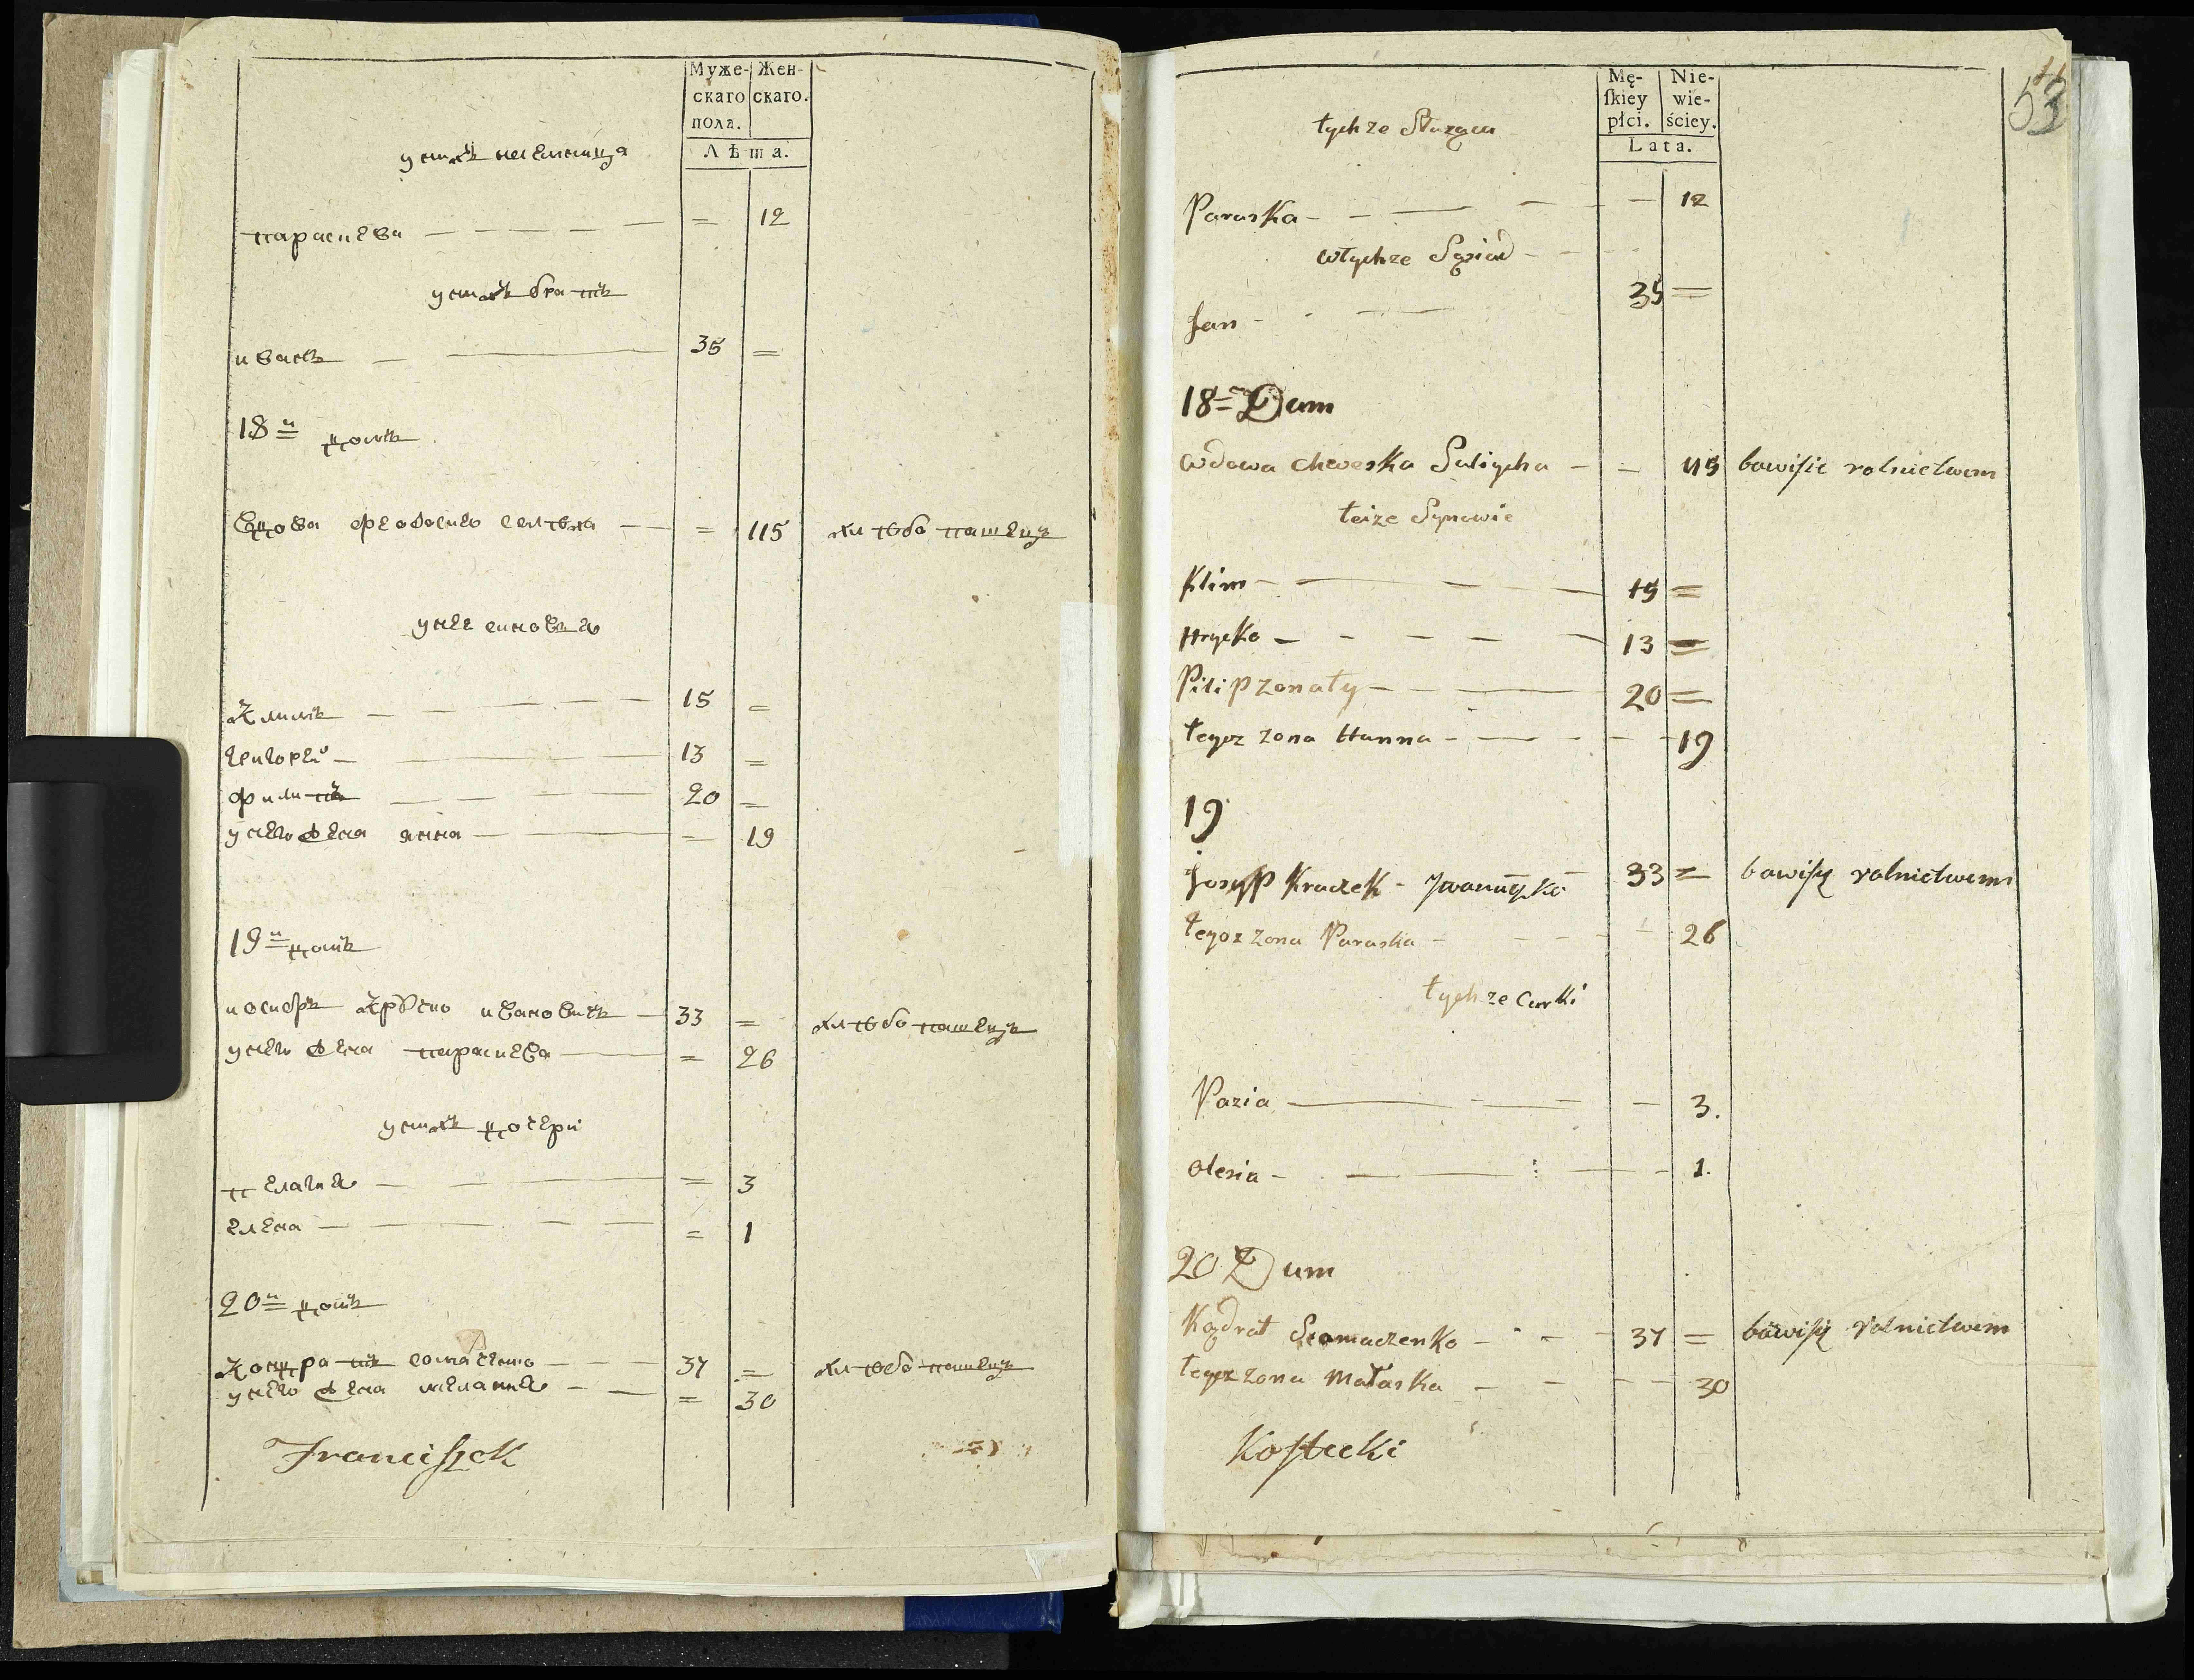 Муже-
скаго
пола.
Жен-
скаго.
Лѣта.
у них племѣница
параскева — — — — = 12
у них братъ
иванъ — — 35 =
18й домъ
Вдова феодосия — = 115 хлебопашецъ
у нее синовья
Климъ — — — — 15 =
григорей — — 13 =
филипъ — — — 20 =
у него жена анна — — = 19
19й домъ
иосифъ ивановичъ — 33 = хлебопашецъ
у него жена параскева — = 26
у них дочери
пелагия — — — = 3
елена — — — — = 1
20й домъ
Кондратъ — — 37 = хлебопашецъ
у него жена мелания — — = 30
Franciszek
53
Mę-
skiey
płci.
Nie-
wie-
ściey.
Lata.
tychze Sluząca
Paraska — — — — — 12
wtychze Sąsiad — —
Jan — — 35 =
18 = Dum
wdowa Chweska Salicha — — 115 bawisie rolnictwem
teize Synowie
Klim — — — — 15 =
Hrycko — — — — — 13 =
Pilip zonaty — — — 20 =
tegoz zona Hanna — — — — 19
19
Josyp Kruczek — 33 = bawisię rolnictwem
tegoz zona Paraska — — — — 26
tychze Curki
Pazia — — — — 3.
Olesia — — — — — 1.
20 Dum
Kądrat Somaczenko — — — 37 = bawisię rolnictwem
tegoz zona Malaska — — — — 30
Kostecki